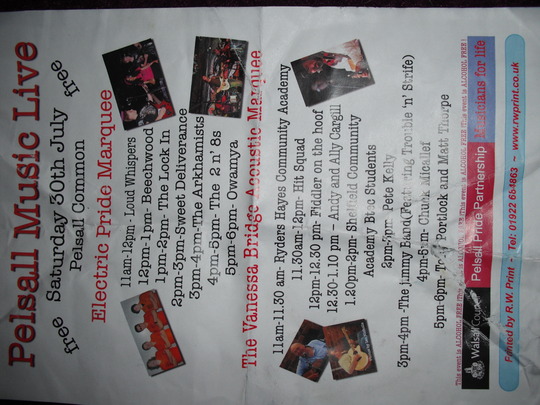 Pelsall Music Live
free Saturday 30th July free
Pelsall Common
Electric Pride Marquee
11am-12pm- Loud Whispers
12pm-1pm- Beechwood
1pm-2pm- The Lock In
2pm-3pm-Sweet Deliverance
3pm-4pm-The Arkhamists
4pm-5pm- The 2 n' 8s
5pm-6pm- Owamya
The Vanessa Bridge Acoustic Marquee
11am-11.30 am- Ryders Hayes Community Academy
11.30am-12pm- Hit Squad
12pm-12.30 pm- Fiddler on the hoof
12.30-1.10 pm – Andy and Ally Cargill
1.20pm-2pm- Sheffield Community
Academy Btec Students
2pm-3pm- Pete Kelly
3pm-4pm -The Jimmy Band(Featuring Trouble 'n' Strife)
4pm-5pm- Chuck Micallef
5pm-6pm- Portlock and Matt Thorpe
This event is ALCOHOL FREE !This event is ALCOHOL FREE !This event is ALCOHOL FREE !
Walsall Council Pelsall Pride Partnership Musicians for life
Printed by R.W. Print - Tel: 01922 ~ www.rwprint.co.uk